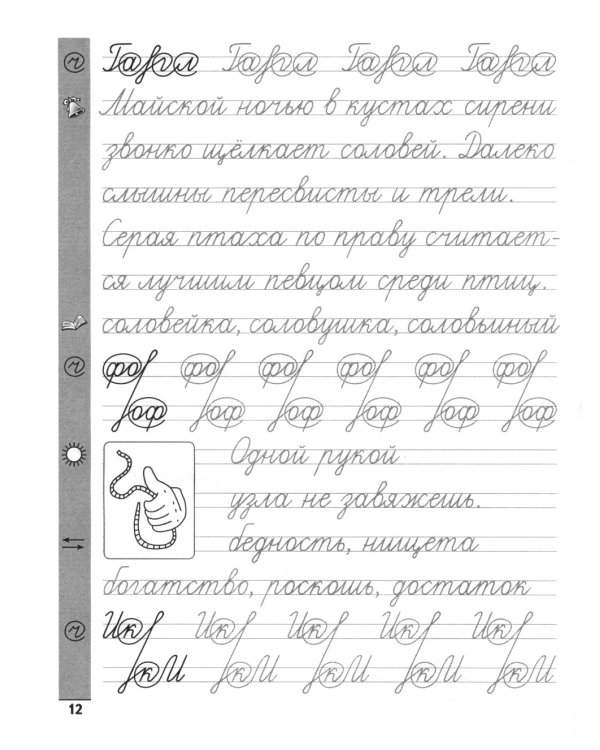 Майской ночью в кустах сирени
звонко щёлкает соловей. Далеко
слышны пересвисты и трели.
Серая птаха по праву считает-
ся лучшим певцом среди птиц.
соловейка, соловушка, соловьиный
фо фо фо фо фо фо
оф оф оф оф оф оф
Одной рукой
узла не завяжешь.
бедность, нищета
богатство, роскошь, достаток
Ик Ик Ик Ик Ик
кИ кИ кИ кИ кИ
12